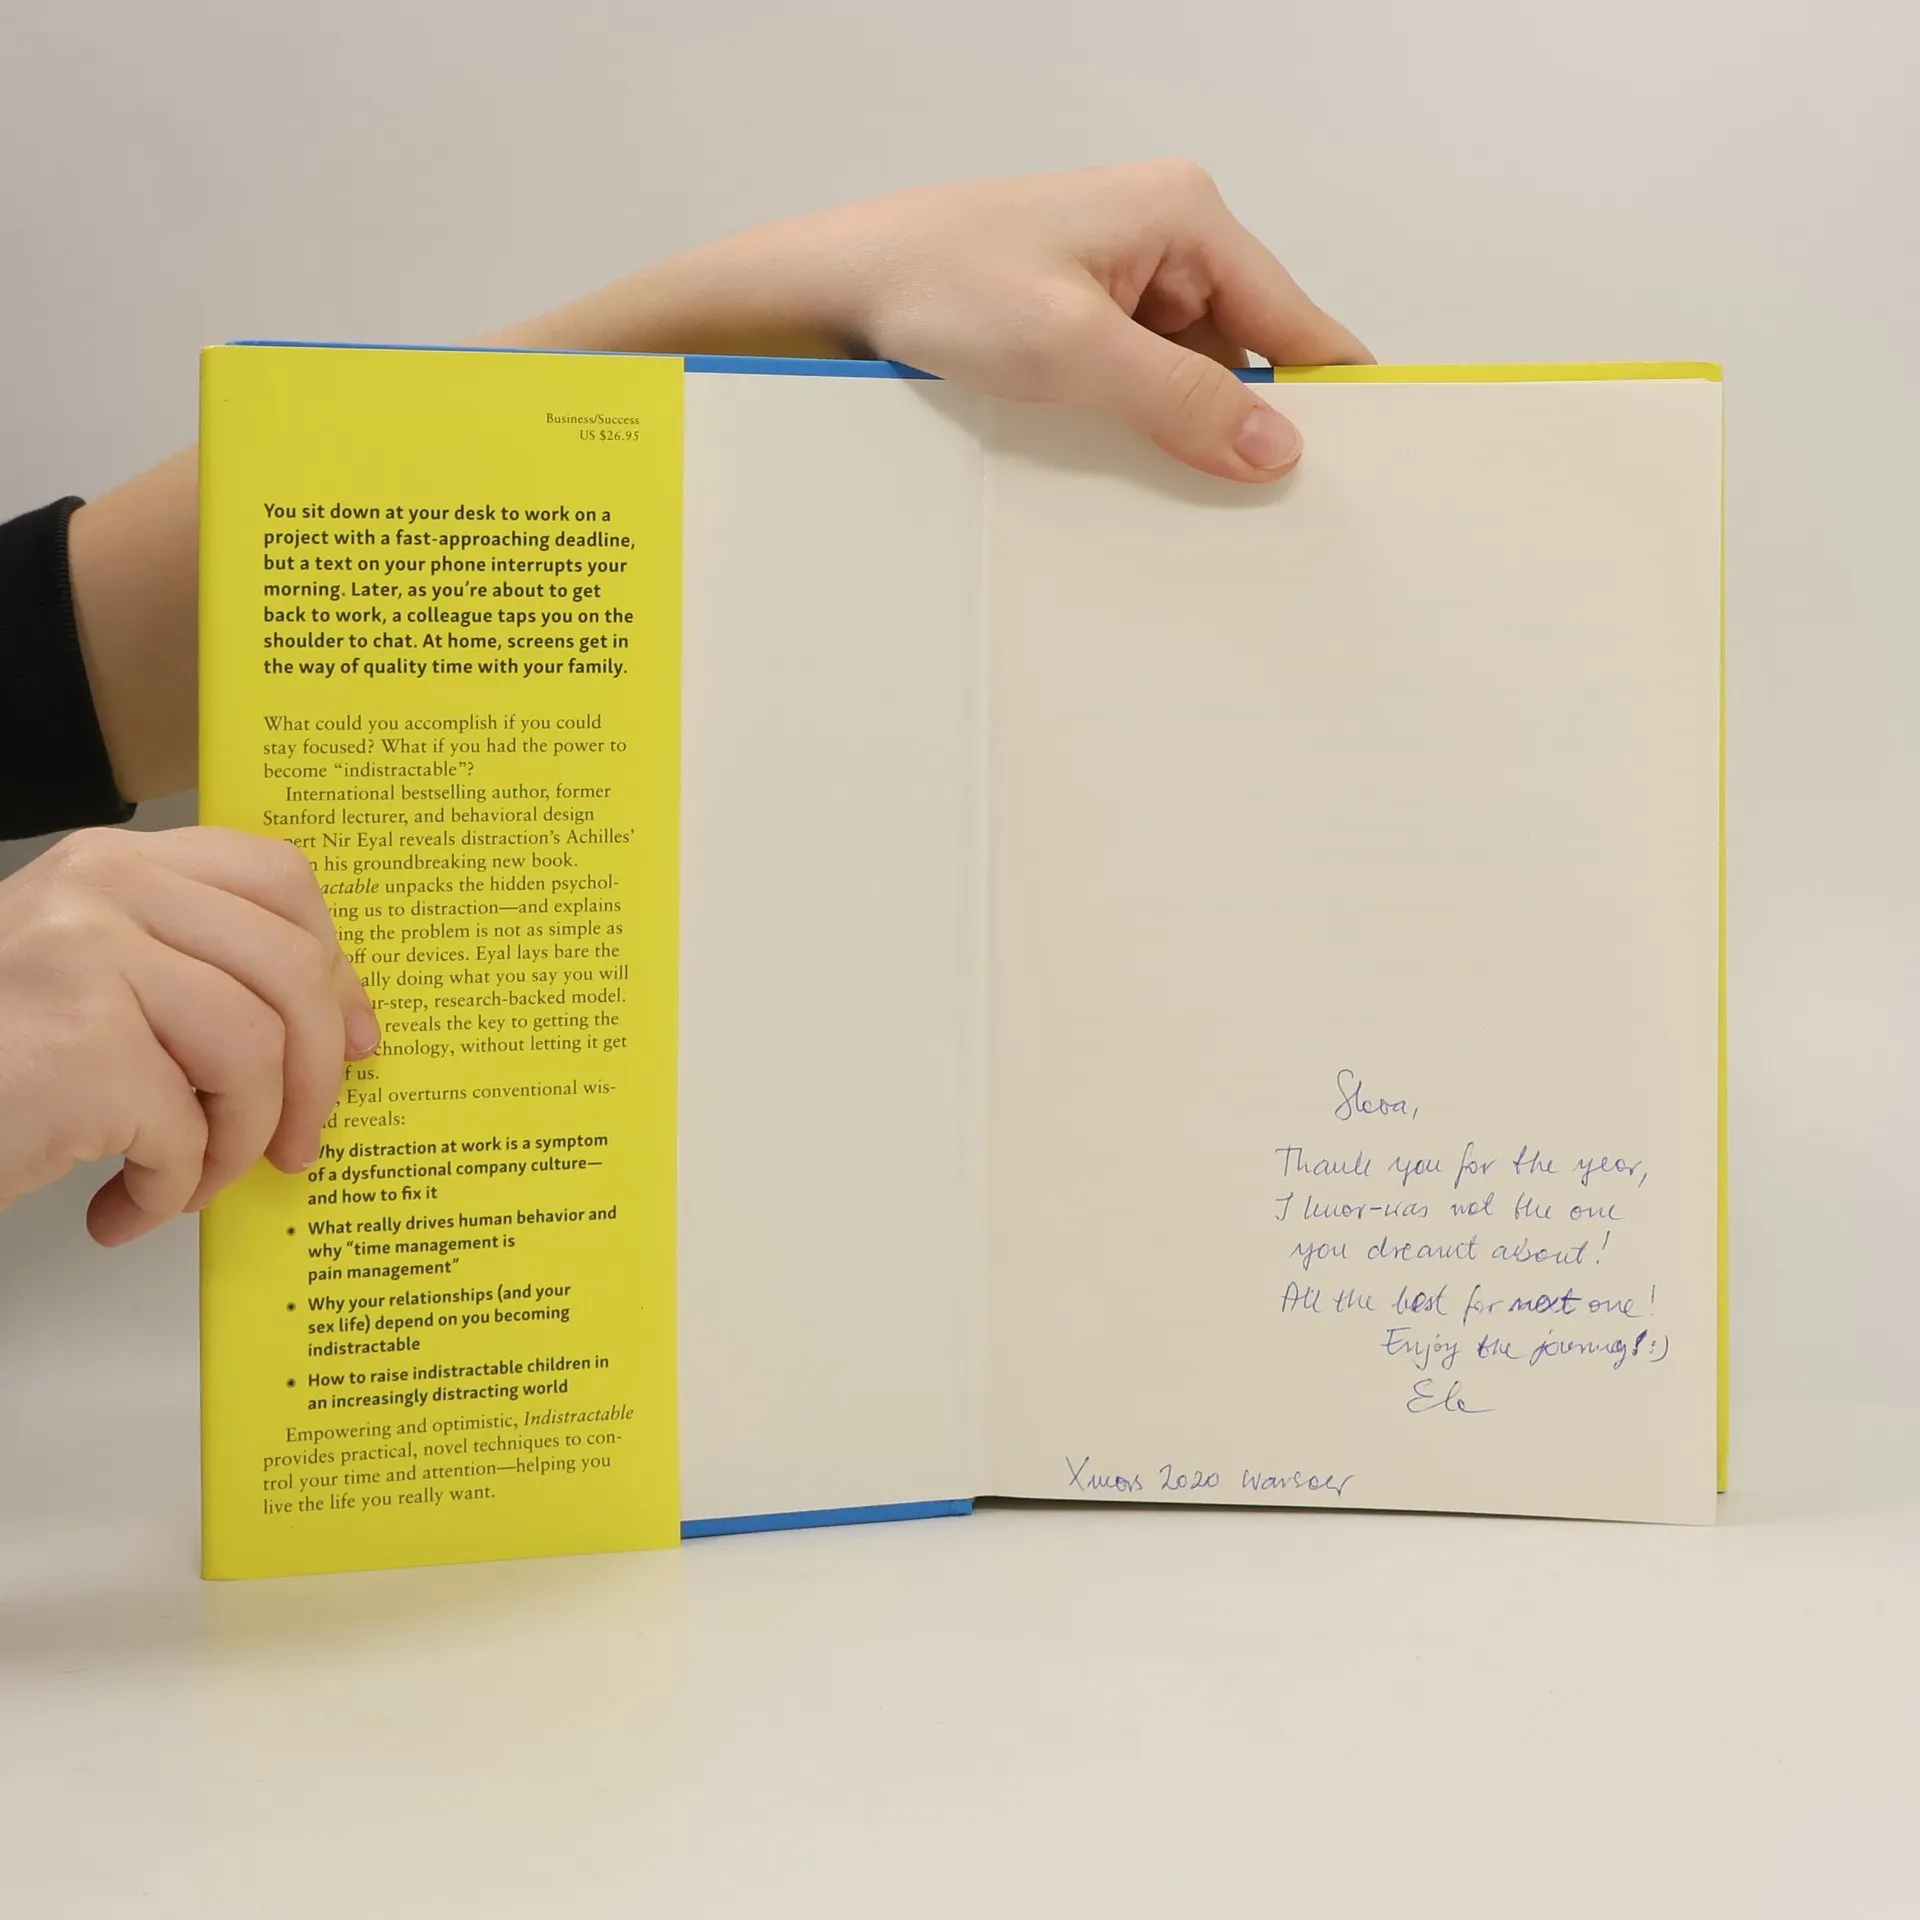 Business/Success
US $26.95
You sit down at your desk to work on a
project with a fast-approaching deadline,
but a text on your phone interrupts your
morning. Later, as you're about to get
back to work, a colleague taps you on the
shoulder to chat. At home, screens get in
the way of quality time with your family.
What could you accomplish if you could
stay focused? What if you had the power to
become “indistractable”?
International bestselling author, former
Stanford lecturer, and behavioral design
pert Nir Eyal reveals distraction's Achilles'
n his groundbreaking new book.
actable unpacks the hidden psychol-
ing us to distraction—and explains
ing the problem is not as simple as
off our devices. Eyal lays bare the
ally doing what you say you will
ur-step, research-backed model.
reveals the key to getting the
chnology, without letting it get
f us.
, Eyal overturns conventional wis-
d reveals:
Why distraction at work is a symptom
of a dysfunctional company culture—
and how to fix it
What really drives human behavior and
why “time management is
pain management”
Why your relationships (and your
sex life) depend on you becoming
indistractable
How to raise indistractable children in
an increasingly distracting world
Empowering and optimistic, Indistractable
provides practical, novel techniques to con-
trol your time and attention—helping you
live the life you really want.
Thank you for the year,
I know-was not the one
you dreamt about!
All the best for next one!
Enjoy the journey! :)
Ela
Xmas 2020 Warsaw